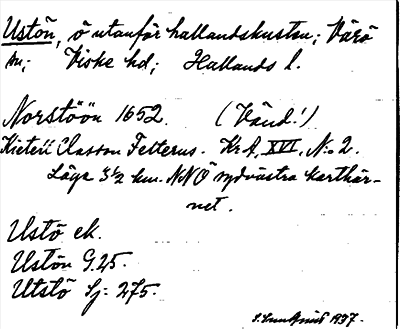 Ustön, ö utanför hallandskusten; Värö
sn; Viske hd; Hallands l.
Norstöön 1652. (Vänd!)
Kietell Classon Felterus. KrA, XVI, N:o 2.
Läge 3½ km. NNÖ sydvästra karthör-
net.
Ustö ek.
Ustön G.25.
Utstö Sj: 275.
1937.